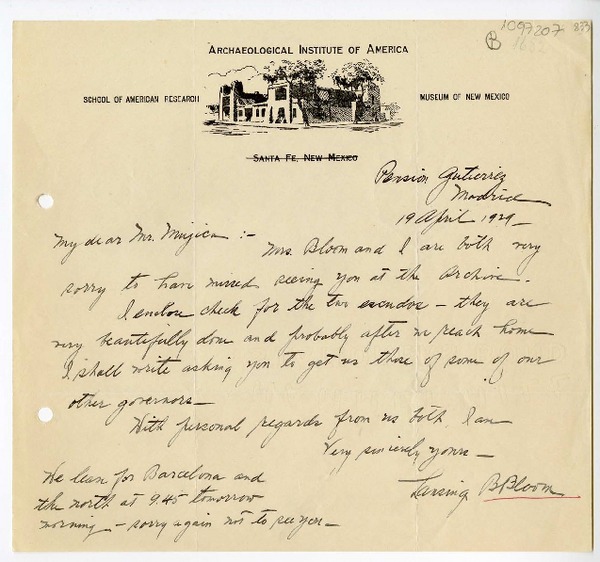 1097207 873
B 1652
ARCHAEOLOGICAL INSTITUTE OF AMERICA
SCHOOL OF AMERICAN RESEARCH
MUSEUM OF NEW MEXICO
SANTA FE, NEW MEXICO
Pension Gutierrez
Madrid
19 April 1929
My dear Mr. Mujica :-
Mrs. Bloom and I are both very
sorry to have missed seeing you at the Archive.
I enclose check for the two escudos – they are
very beautifully done and probably after we reach home
I shall write asking you to get us those of some of our
other governors –
With personal regards from us both, I am
Very sincerely yours –
Lansing B Bloom
We leave for Barcelona and
the north at 9.45 tomorrow
morning – sorry again not to see you –